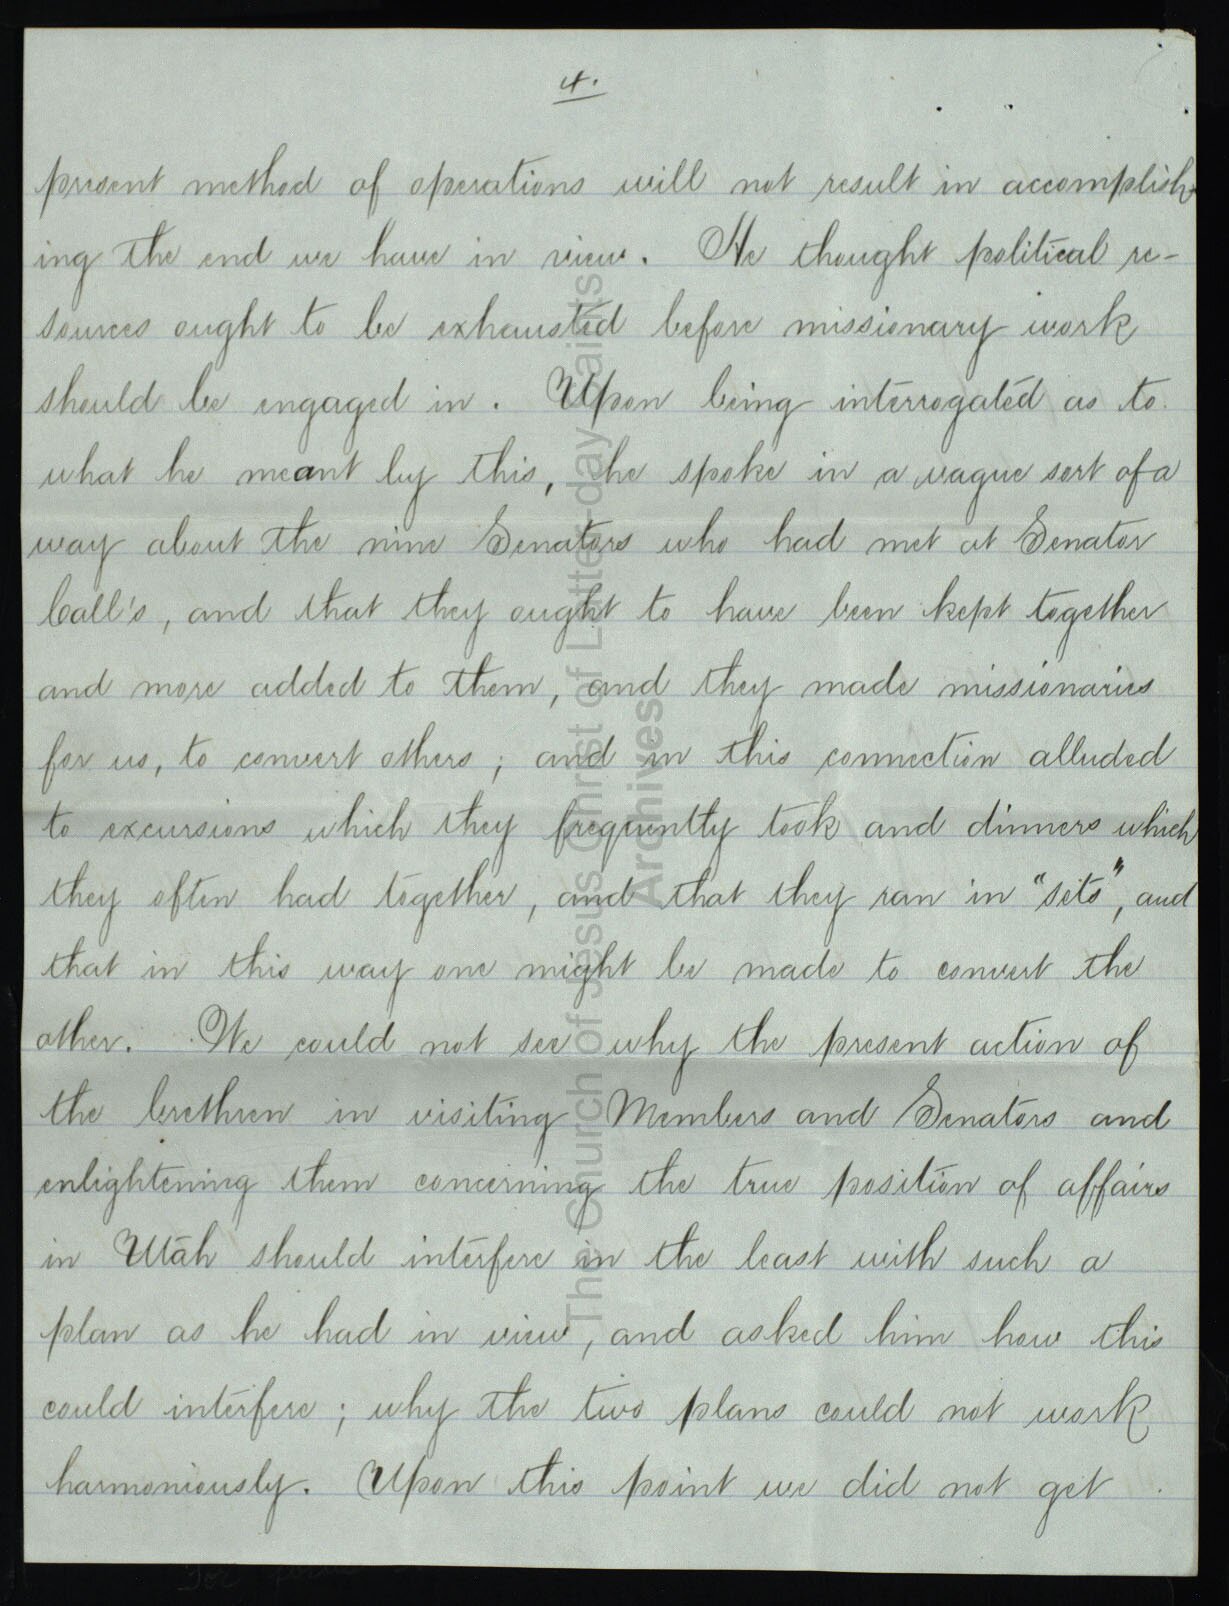 4.
present method of operations will not result in accomplish-
ing the end we have in view. He thought political re-
sources ought to be exhausted before missionary work
should be engaged in. Upon being interrogated as to
what he meant by this, he spoke in a vague sort of a
way about the nine Senators who had met at Senator
Call's, and that they ought to have been kept together
and more added to them, and they made missionaries
for us, to convert others; and in this connection alluded
to excursions which they frequently took and dinners which
they often had together, and that they ran in "sets", and
that in this way one might be made to convert the
other. We could not see why the present action of
the brethren in visiting Members and Senators and
enlightening them concerning the true position of affairs
in Utah should interfere in the least with such a
plan as he had in view, and asked him how this
could interfere; why the two plans could not work
harmoniously. Upon this point we did not get
The Church of Jesus Christ of Latter-day Saints
Archives